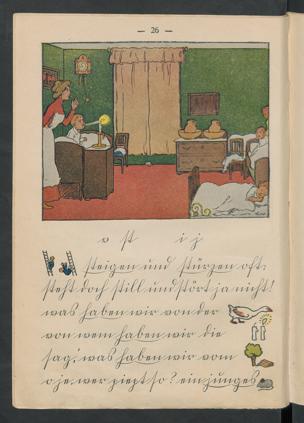 — 26 —
v st i j
steigen und stürzen oft.
steht doch still und stört ja nicht!
was haben wir von der
von wem haben wir die
sag, was haben wir vom
o je, wer piept so? ein junges